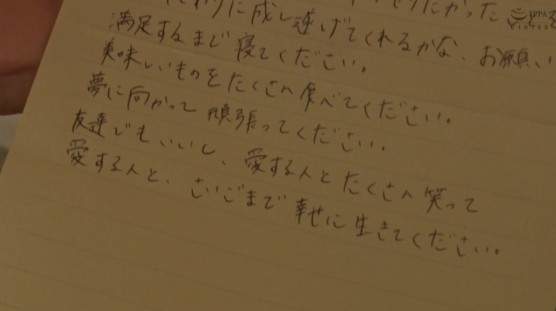 わりに成し遂げてくれるかな、お願い
満足するまで寝てください。
美味しいものをたくさん食べてください。
夢に向かって頑張ってください。
友達でもいいし、愛する人とたくさん笑って
愛する人と、さいごまで幸せに生きてください。